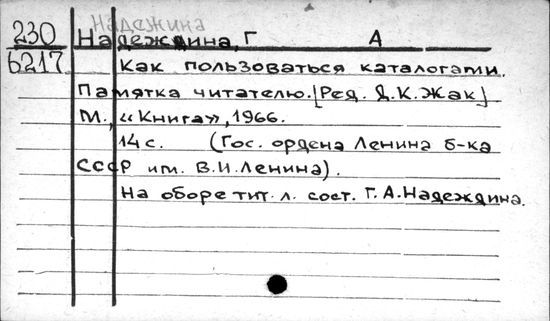 Надежина
230 Надеждина, Г А
6217 Как пользоваться каталогами.
Памятка читателю. [Ред. Д.К. Жак]
М., «Книга», 1966.
14 с. (Гос. ордена Ленина б-ка
СССР им. В.И. Ленина).
На оборе тит. л. сост. Г.А. Надеждина.